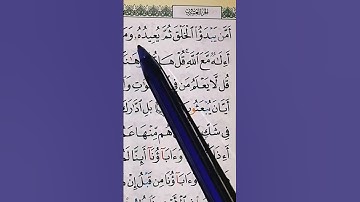 الجزء العشرون
أَمَّن يَبْدَؤُاْ ٱلْخَلْقَ ثُمَّ يُعِيدُهُۥ وَمَ
أَءِلَٰهٌ مَّعَ ٱللَّهِ ۚ قُلْ هَا
قُل لَّا يَعْلَمُ مَن فِي
أَيَّانَ يُبْعَثُو بَلِ ٱدَّٰرَكَ
فِي شَكٍّ هُم مِّنْهَا عَم
أَءِذَا وَءَابَآؤُنَآ أَئِنَّا
وَءَابَآؤُنَا مِن قَبْلُ إِنْ